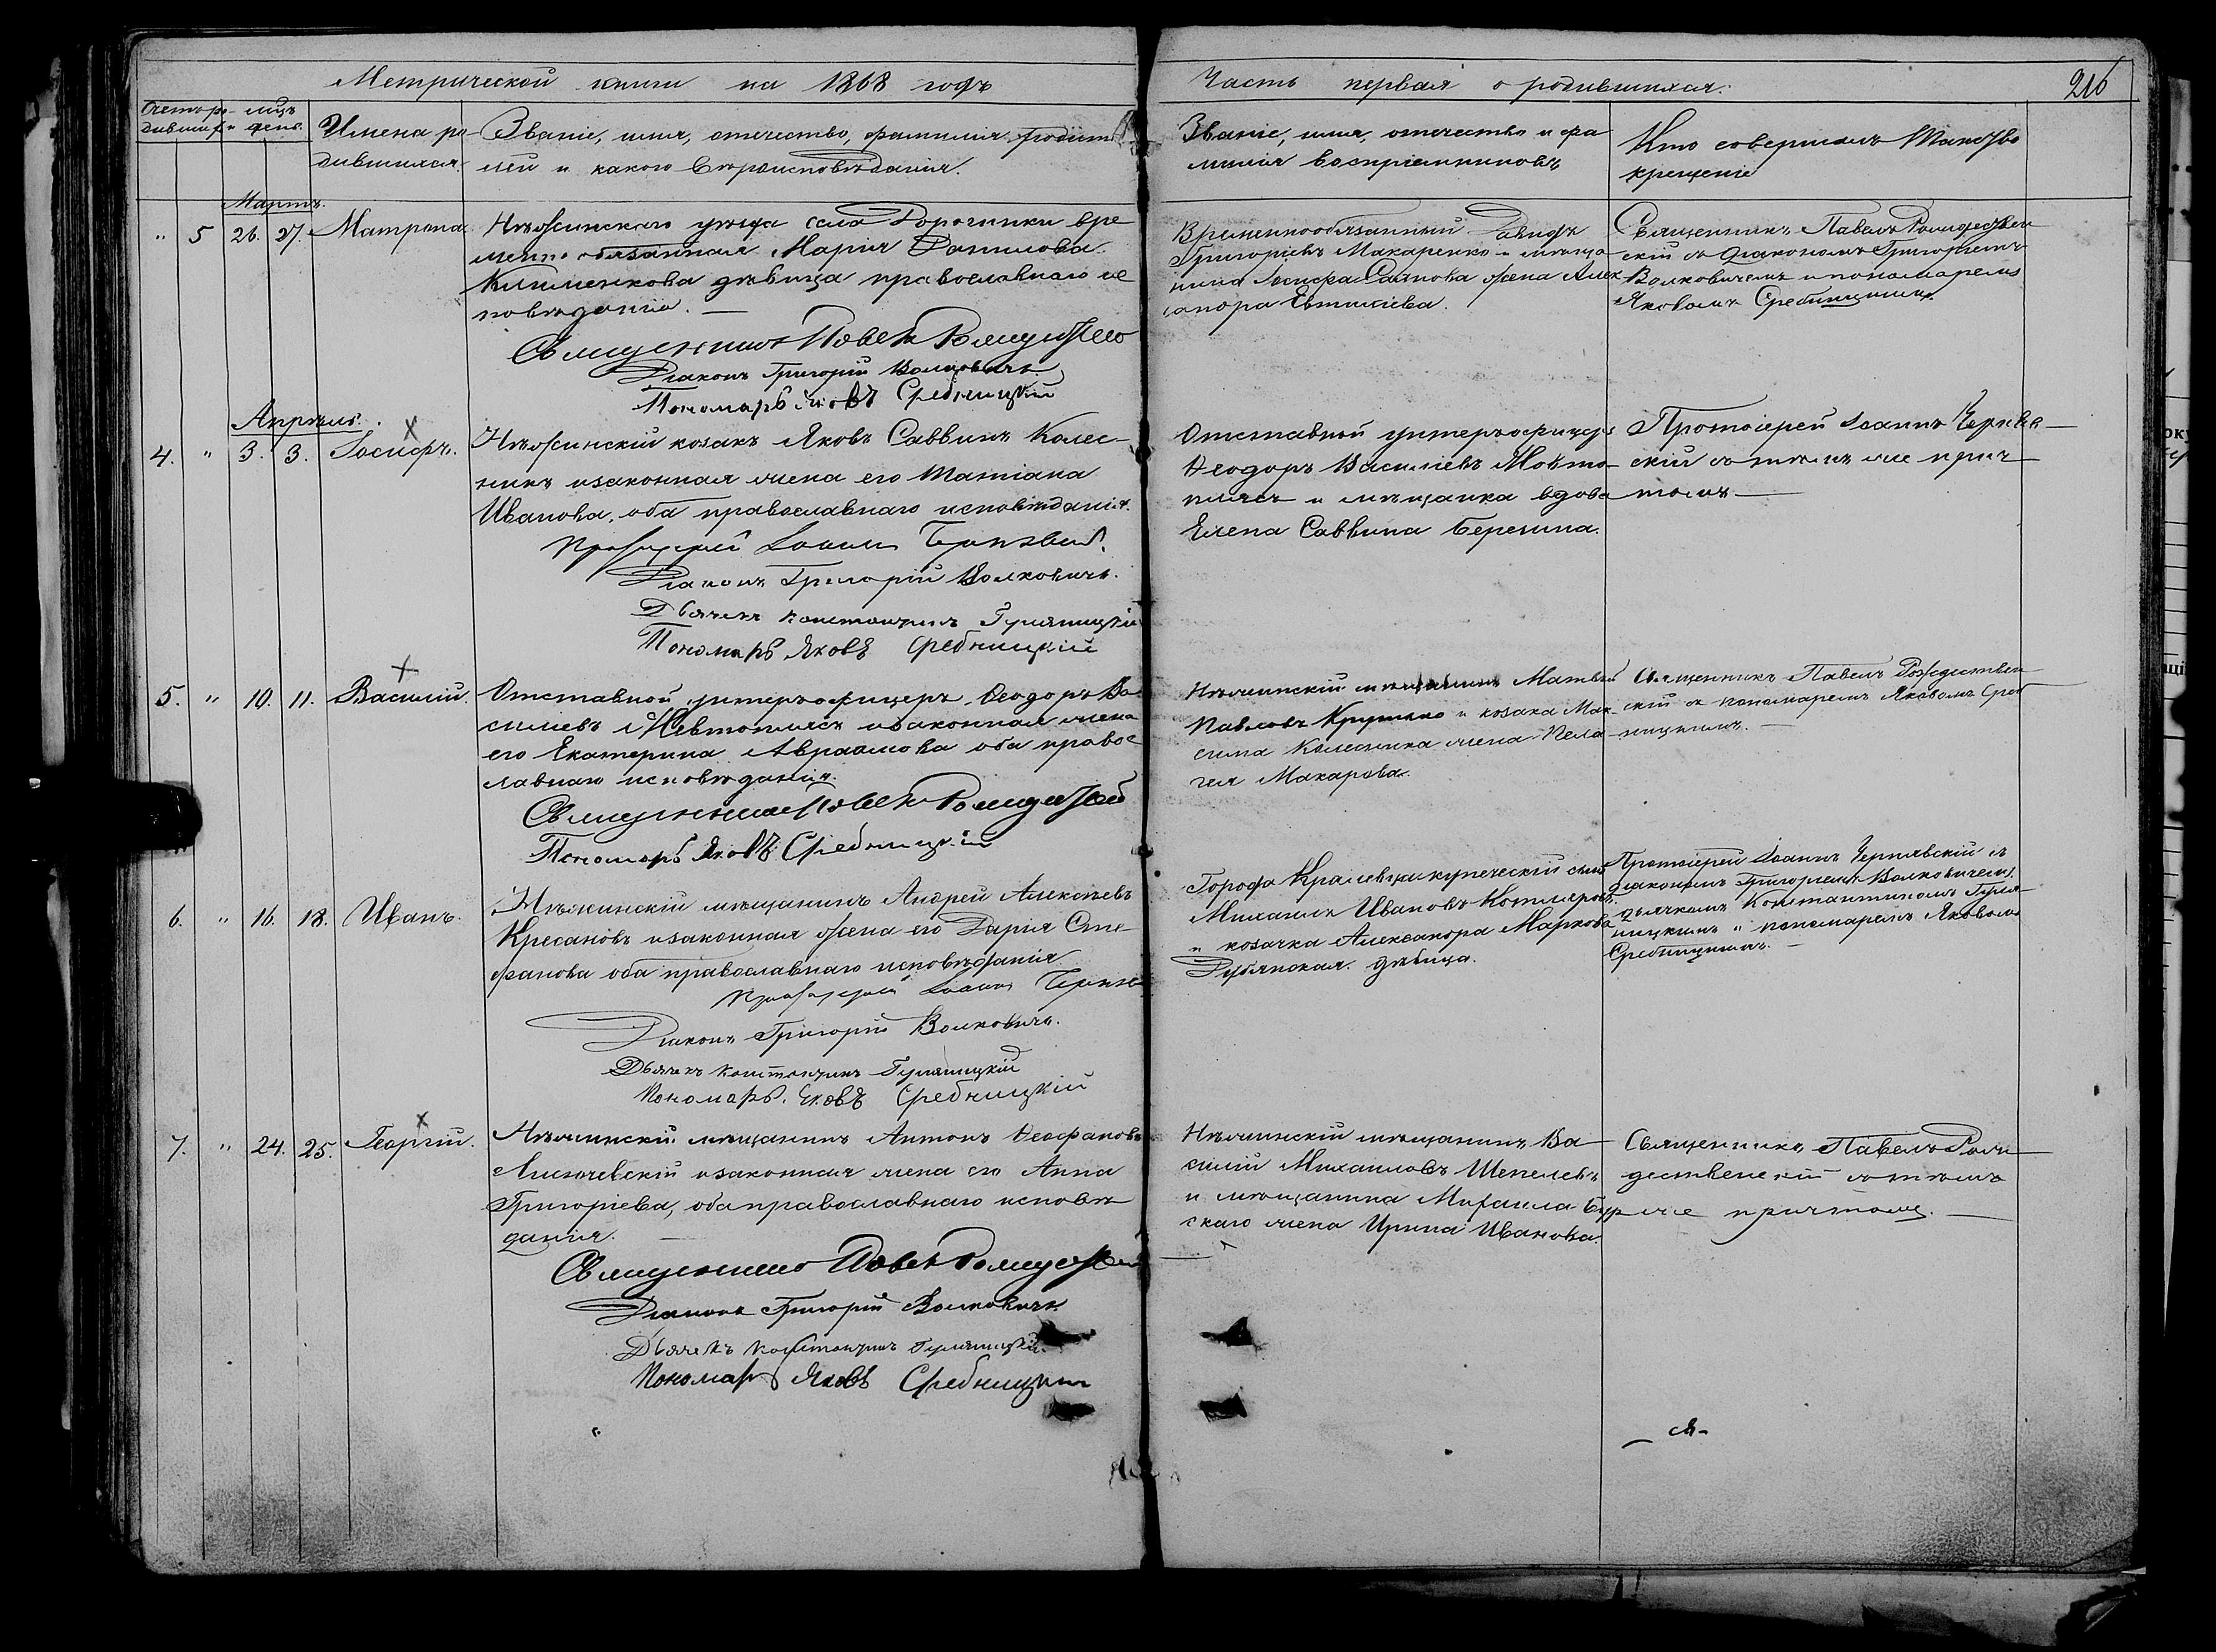 Метрической книги на 1868 годъ
Часть первая о родившихся.
216
Счетъ ро- мѣсяцъ
дивших. и день.
Имена ро
дившихся.
Званіе, имя, отечество, фамилія родите
лей и какого вѣроисповѣданія.
Званіе, имя, отечество и фа
милія воспріемниковъ
Кто совершалъ таинство
крещеніе
Мартъ.
" 5 26. 27. Матрона
Нѣжинскаго уѣзда села Дорогинки вре
менно обязанная Марія Данилова
Клименкова дѣвица православнаго ис
повѣданія.
Священникъ Павелъ Рождестве
Діаконъ Григорій Волковичъ
Пономарь Яковъ Сребницкій
Временнообязанный Давидъ
Григорьевъ Макаренко и мѣща
нина Іосифа Саянова жена Алек
сандра Евтихіева.
Священникъ Павелъ Рождествен
скій съ діакономъ Григоріемъ
Волковичемъ и пономаремъ
Яковомъ Сребницкимъ
Апрѣль.
4. " 3. 3. Іосифъ.
Нѣжинскій козакъ Яковъ Саввинъ Колес-
никъ и законная жена его Татіана
Иванова, оба православнаго исповѣданія.
Протоіерей Іоаннъ Чернявс.
Діаконъ Григорій Волковичъ.
Дьячекъ Константинъ Гуляницкій
Пономарь Яковъ Сребницкій
Отставной унтеръ-офицеръ
Ѳеодоръ Васильевъ Мовто-
плясъ и мѣщанка вдова
Елена Саввина Березина.
Протоіерей Іоаннъ Черняв-
скій съ тѣмъ же прич
томъ
5. " 10. 11. Василій.
Отставной унтеръ-офицеръ Ѳеодоръ Ва-
сильевъ Мевтоплясъ и законная жена
его Екатерина Авраамова оба правос
лавнаго исповѣданія.
Священникъ Павелъ Рождествен
Пономарь Яковъ Сребницкій
Нѣжинскій мѣщанинъ Матвѣй
Павловъ Крутько и козака Мак-
сима Колесника жена Пела-
гея Макарова.
Священникъ Павелъ Рождествен
скій съ пономаремъ Яковомъ Среб
ницкимъ.
6. " 16. 18. Иванъ.
Нѣжинскій мѣщанинъ Андрей Алексѣевъ
Кресановъ и законная жена его Дарія Сте-
фанова оба православнаго исповѣданія
Протоіерей Іоаннъ Черняв
Діаконъ Григорій Волковичъ.
Дьячекъ Константинъ Гуляницкій
Пономарь Яковъ Сребницкій
Города Кралевца купеческій сынъ
Михаилъ Ивановъ Котляровъ
и козачка Александра Маркова
Дубянская дѣвица.
Протоіерей Іоаннъ Чернявскій съ
діакономъ Григоріемъ Волковичемъ,
дьячкомъ Константиномъ Гуля
ницкимъ и пономаремъ Яковомъ
Сребницкимъ.
7. " 24. 25. Георгій.
Нѣжинскій мѣщанинъ Антонъ Ѳеофановъ
и законная жена его Анна
Григоріева, оба православнаго исповѣ
данія.
Священникъ Павелъ Рождествен
Діаконъ Григорій Волковичъ
Дьячекъ Константинъ Гуляницкій.
Пономарь Яковъ Сребницкій
Нѣжинскій мѣщанинъ Ва
силій Михаиловъ Шепелевъ
и мѣщанина Михаила Бур
скаго жена Ирина Иванова.
Священникъ Павелъ Рож
дественскій съ тѣмъ
же причтомъ.